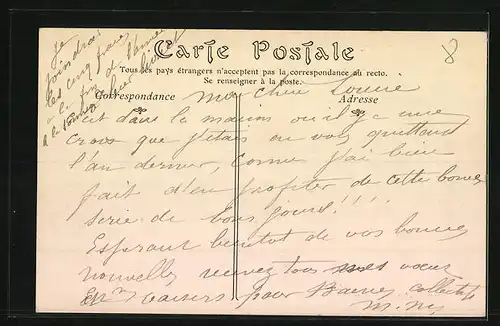 Je
joindrai
les cinq francs
à la fin de l'année
à la
8
Carte Postale
Tous les pays étrangers n'acceptent pas la correspondance au recto.
Se renseigner à la poste.
Correspondance
Adresse
Ma chère
C'est dans la maison où il y a une
croix que j'étais en vous quittant
l'an dernier, comme j'ai bien
fait d'en profiter de cette bonne
serie de bons jours!!!!
Esperant bientot de vos bonnes
nouvelles recevez tous mes vœux
et baisers pour